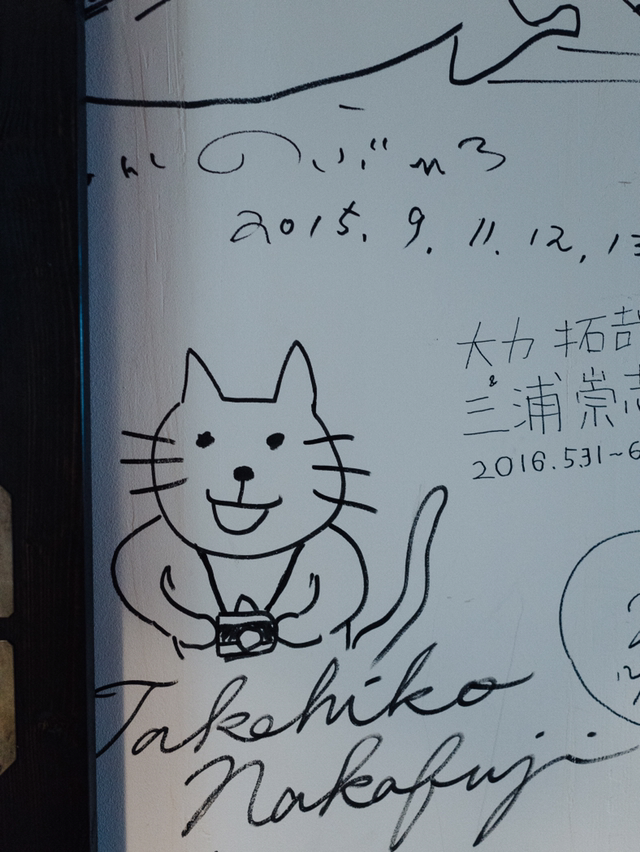 のぶ
2015. 9. 11. 12, 13
大力 拓哉
三浦 崇志
2016.5.31~6
Takehiko
Nakafuji